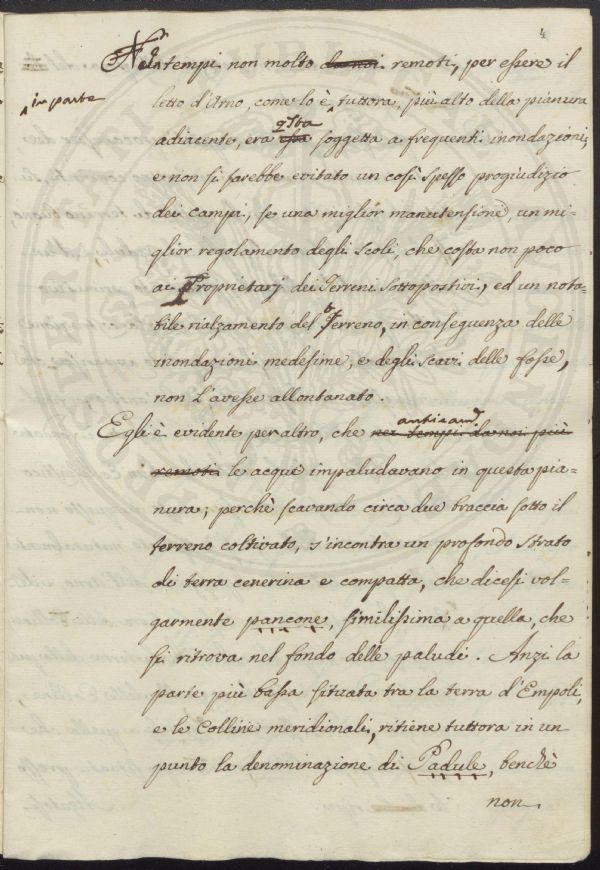 4
Nei tempi non molto da noi remoti, per essere il
in parte
letto d'Arno, come lo è tuttora, più alto della pianura
qsta
adiacente, era soggetta a frequenti inondazioni;
e non si sarebbe evitato un così spesso progiudizio
dei campi, se una miglior manutensione, un mi=
glior regolamento degli scoli, che costa non poco
ai Proprietarj dei Terreni sottopostivi, ed un nota=
bile rialzamento del Terreno, in conseguenza delle
inondazioni medesime, e degli scavi delle fosse,
non l'avesse allontanato.
anticam
Egli è evidente per altro, che nei tempi da noi più
remoti le acque impaludavano in questa pia=
nura; perchè scavando circa due braccia sotto il
terreno coltivato, s'incontra un profondo strato
di terra cenerina e compatta, che dicesi vol=
garmente pancone, similissima a quella, che
si ritrova nel fondo delle paludi. Anzi la
parte più bassa situata tra la terra d'Empoli,
e le Colline meridionali, ritiene tuttora in un
punto la denominazione di Padule, benchè
non